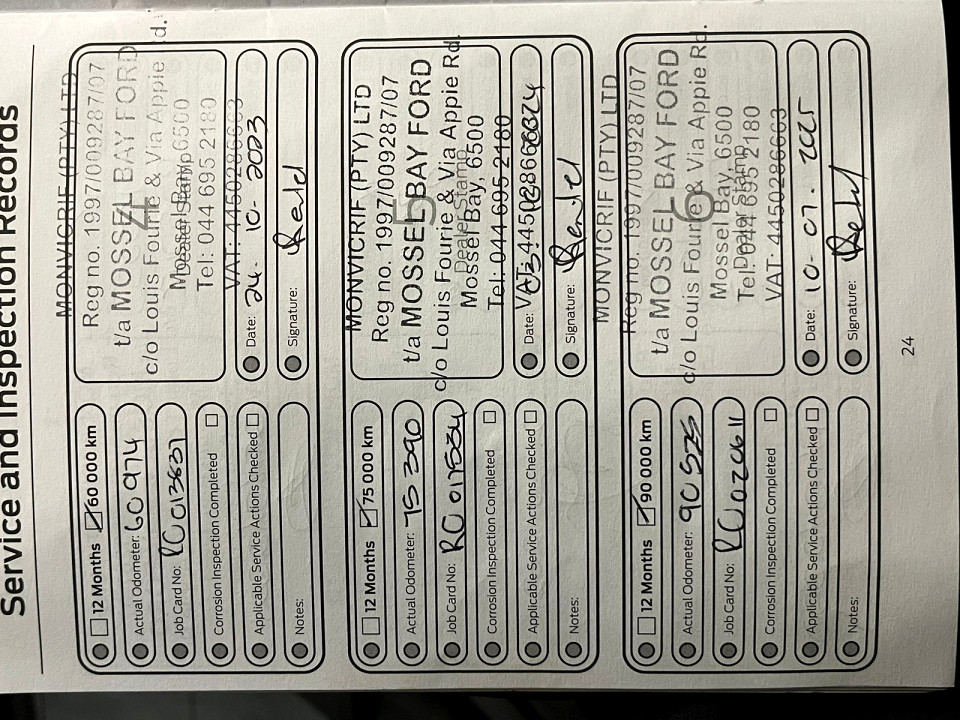 Service and Inspection Records
12 Months 60 000 km
Actual Odometer: 60 974
Job Card No: RC013637
Corrosion Inspection Completed
Applicable Service Actions Checked
Notes:
MONVICRIF (PTY) LTD
Reg no. 1997/009287/07
t/a MOSSEL BAY FORD
c/o Louis Fourie & Via Appie Rd.
Mossel Bay, 6500
Dealer Stamp
Tel: 044 695 2180
VAT: 4450286663
4
Date: 24-10-2023
Signature:
12 Months 75 000 km
Actual Odometer: 75 390
Job Card No: RC017534
Corrosion Inspection Completed
Applicable Service Actions Checked
Notes:
MONVICRIF (PTY) LTD
Reg no. 1997/009287/07
t/a MOSSEL BAY FORD
c/o Louis Fourie & Via Appie Rd.
Dealer Stamp
Mossel Bay, 6500
Tel: 044 695 2180
VAT: 4450286663
5
Date:
Signature:
12 Months 90 000 km
Actual Odometer: 90 525
Job Card No: RC020611
Corrosion Inspection Completed
Applicable Service Actions Checked
Notes:
MONVICRIF (PTY) LTD
Reg no. 1997/009287/07
t/a MOSSEL BAY FORD
c/o Louis Fourie & Via Appie Rd.
Mossel Bay, 6500
Dealer Stamp
Tel: 044 695 2180
VAT: 4450286663
6
Date: 10-07-2025
Signature:
24